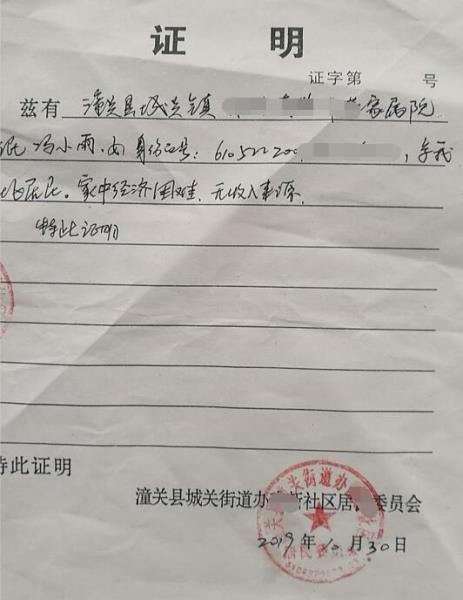 证 明
证字第 号
兹有 潼关县城关镇 家属院
居民冯小雨,女 身份证号:610522200 ,系我
处居民。家中经济困难,无收入来源,
特此证明
特此证明
潼关县城关街道办 社区居 委员会
2019 年 10 月 30 日